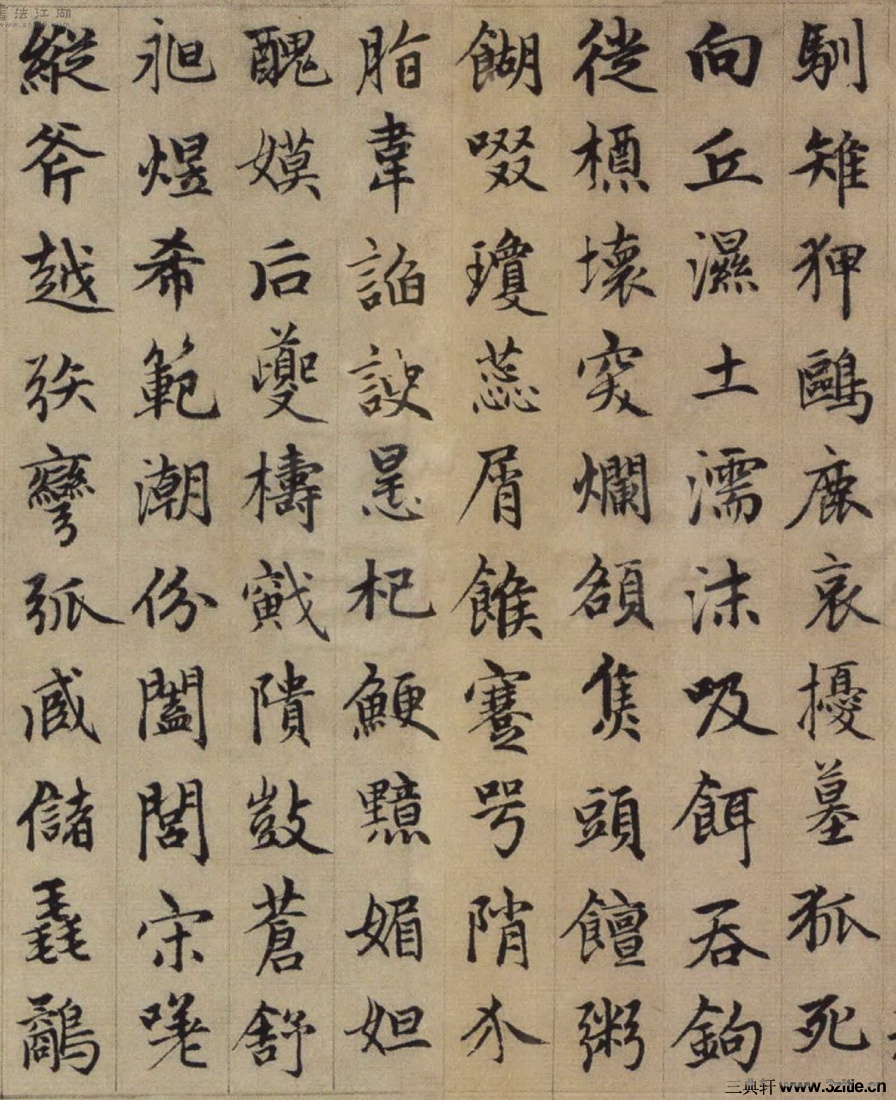 馴雉狎鷗鹿哀擾墓狐死
向丘濕土濡沫吸餌吞鉤
從槱壞突爛額焦頭饘粥
餬啜瓊蕊屑餱蹇咢陗
脂韋諂諛杞鯁黯媚妲
醜嫫后夔檮戭隤敳蒼舒
昶煜希範潮份闔閭宋
縱斧越弦彎弧臧儲毳鷸
書法江湖
三典轩 www.3zitie.cn